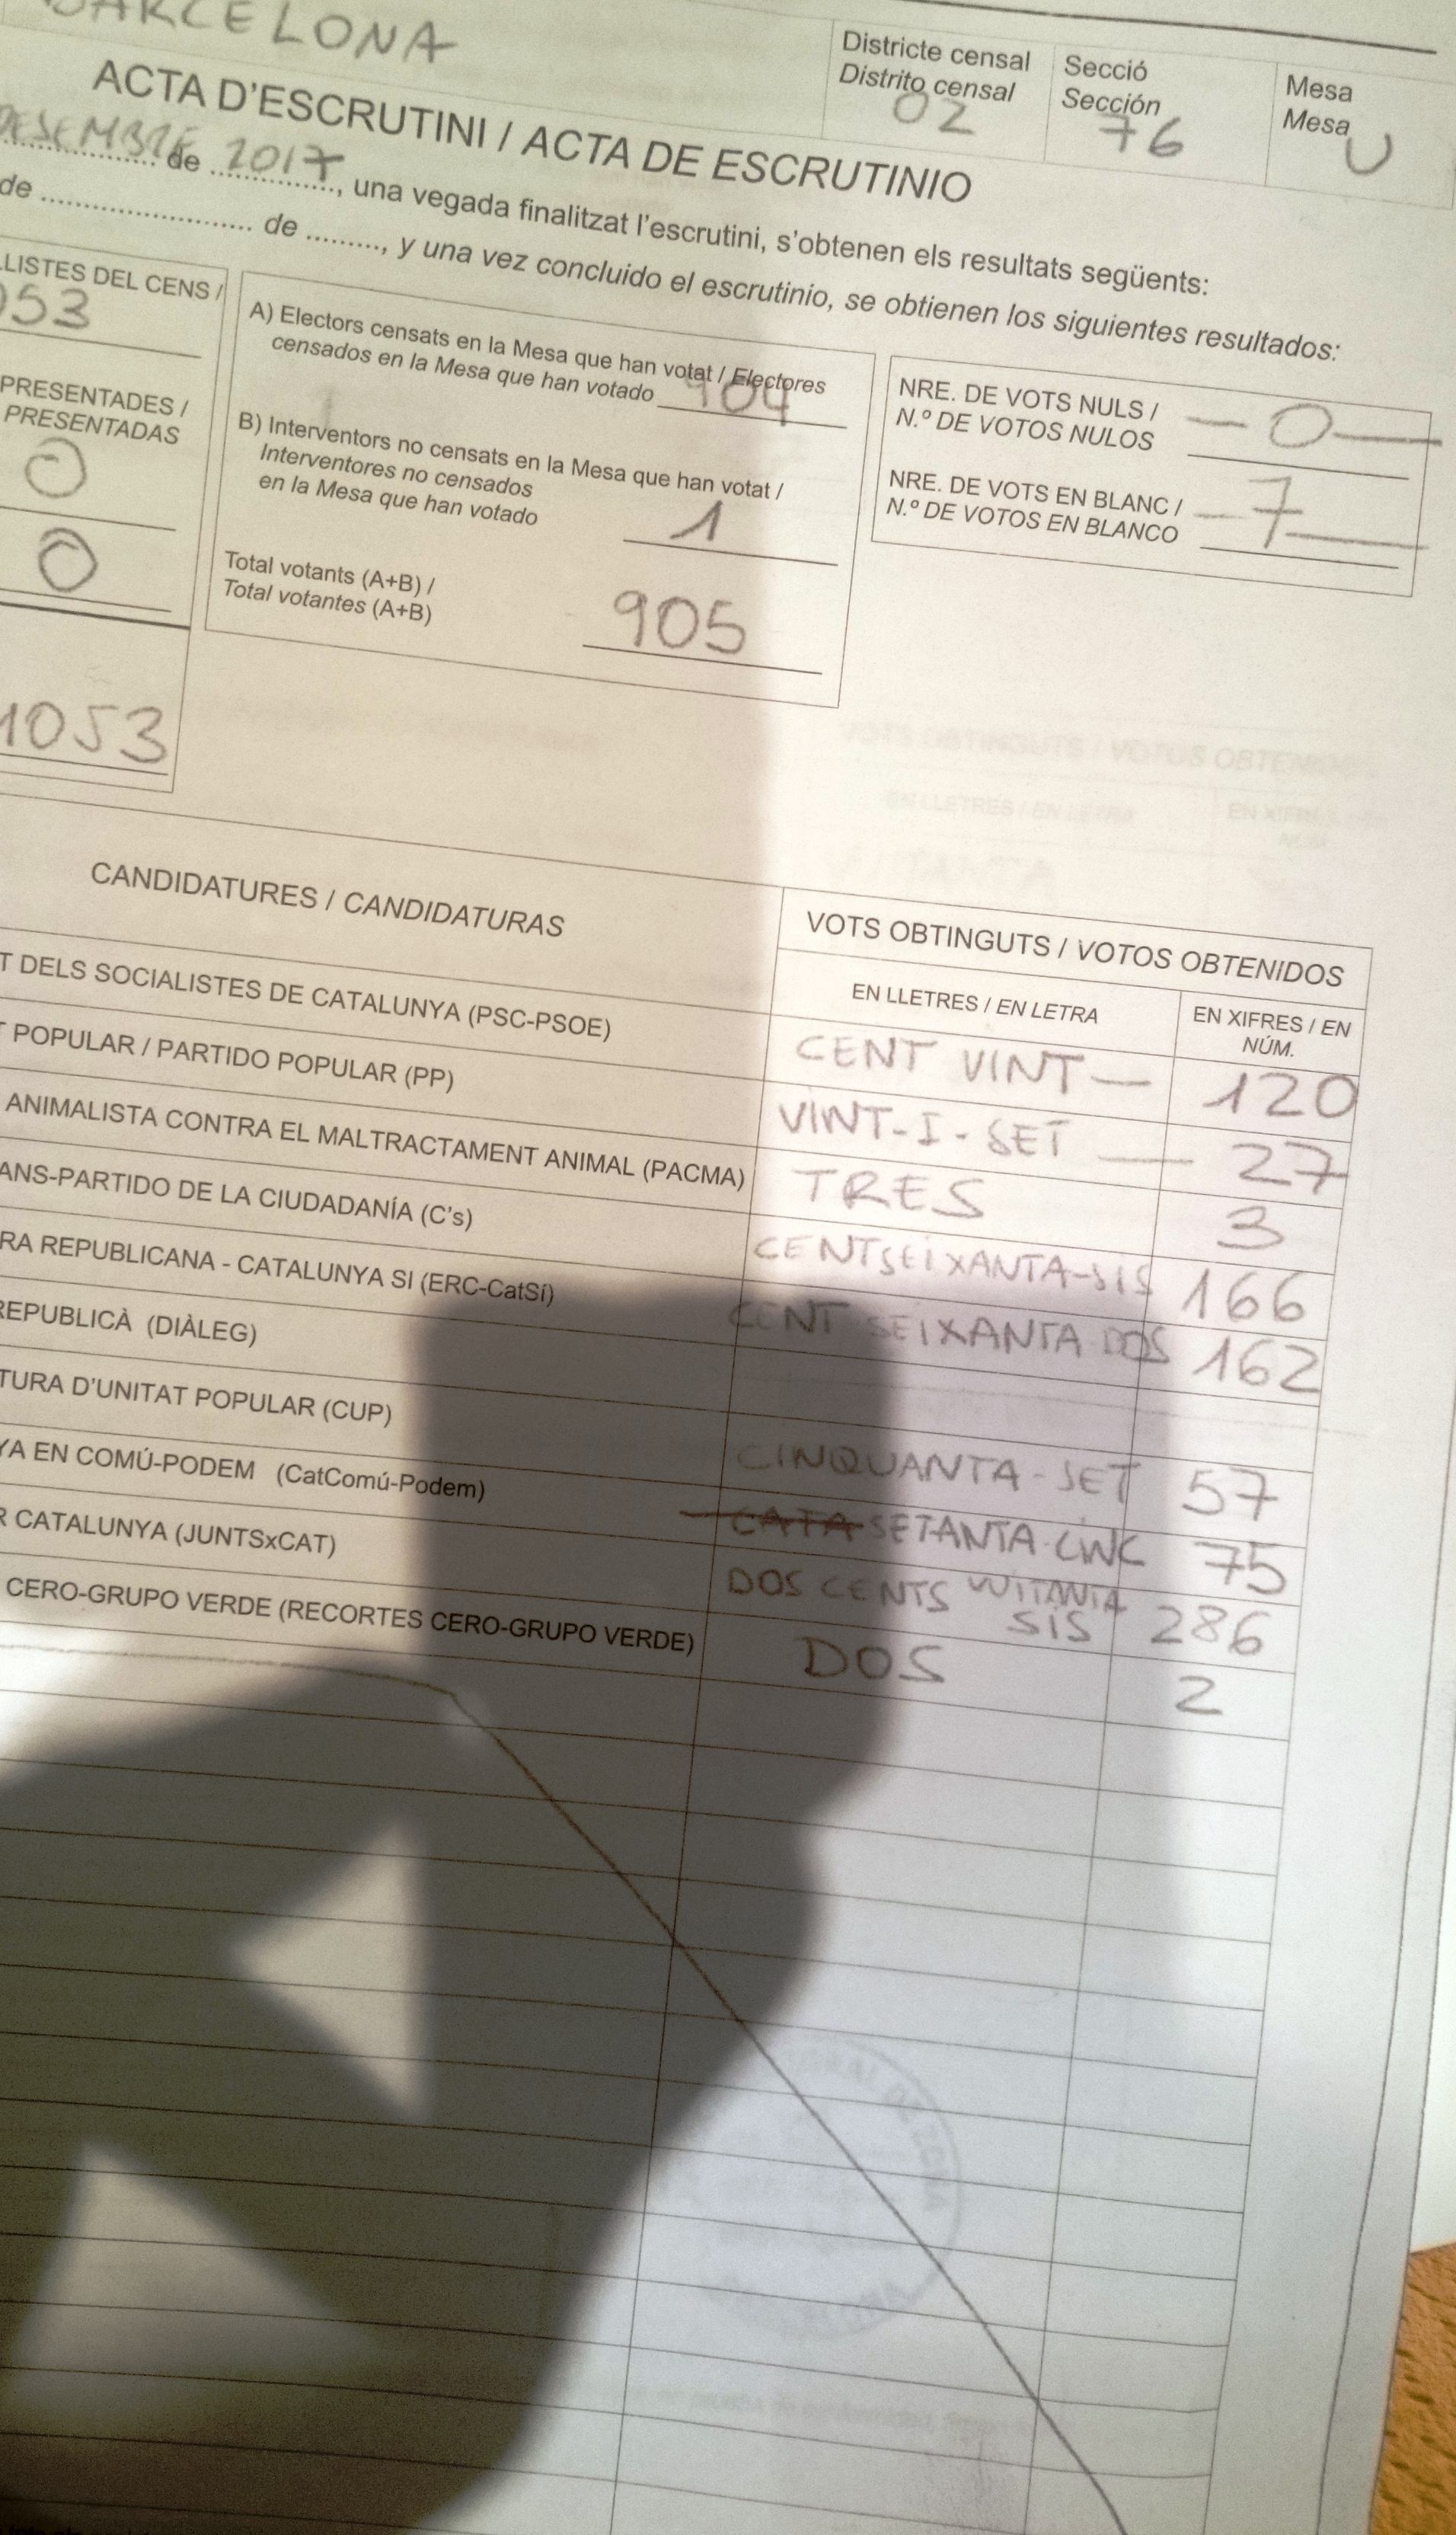 BARCELONA
Districte censal
Distrito censal
02
Secció
Sección
76
Mesa
Mesa
U
ACTA D'ESCRUTINI / ACTA DE ESCRUTINIO
DESEMBRE de 2017, una vegada finalitzat l'escrutini, s'obtenen els resultats següents:
de .......... de ........., y una vez concluido el escrutinio, se obtienen los siguientes resultados:
LLISTES DEL CENS /
053
PRESENTADES /
PRESENTADAS
0
0
1053
A) Electors censats en la Mesa que han votat / Electores
censados en la Mesa que han votado 904
B) Interventors no censats en la Mesa que han votat /
Interventores no censados
en la Mesa que han votado 1
Total votants (A+B) /
Total votantes (A+B) 905
NRE. DE VOTS NULS /
N.º DE VOTOS NULOS — 0 —
NRE. DE VOTS EN BLANC /
N.º DE VOTOS EN BLANCO — 7 —
CANDIDATURES / CANDIDATURAS
VOTS OBTINGUTS / VOTOS OBTENIDOS
EN LLETRES / EN LETRA
EN XIFRES / EN
NÚM.
T DELS SOCIALISTES DE CATALUNYA (PSC-PSOE) CENT VINT — 120
T POPULAR / PARTIDO POPULAR (PP) VINT-I-SET — 27
ANIMALISTA CONTRA EL MALTRACTAMENT ANIMAL (PACMA) TRES 3
ANS-PARTIDO DE LA CIUDADANÍA (C's) CENTSEIXANTA-SIS 166
RA REPUBLICANA - CATALUNYA SI (ERC-CatSí) CENT SEIXANTA DOS 162
REPUBLICÀ (DIÀLEG)
TURA D'UNITAT POPULAR (CUP) CINQUANTA-SET 57
YA EN COMÚ-PODEM (CatComú-Podem) CATA SETANTA-CINC 75
R CATALUNYA (JUNTSxCAT) DOS CENTS VUITANTA SIS 286
CERO-GRUPO VERDE (RECORTES CERO-GRUPO VERDE) DOS 2